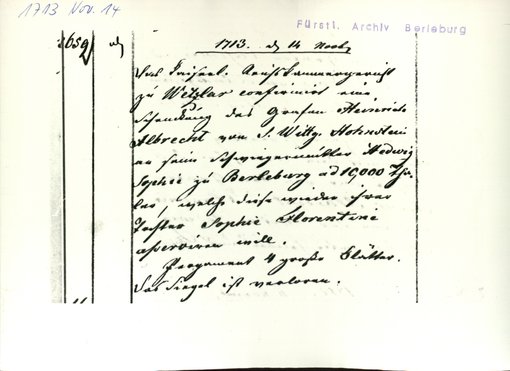 1713 Nov. 14
Fürstl. Archiv Berleburg
1713. d. 14 Novbr
Das Kaiserl. Reichskammergericht
zu Wetzlar confirmirt eine
Schenkung des Grafen Heinrich
Albrecht von S. Wittg. Hohnstein
an seine Schwiegermutter Hedwig
Sophie zu Berleburg ad 10,000 Tha-
ler, welche diese wieder ihrer
Tochter Sophie Florentine
will.
Pergament 4 große Blätter.
Das Siegel ist verloren.